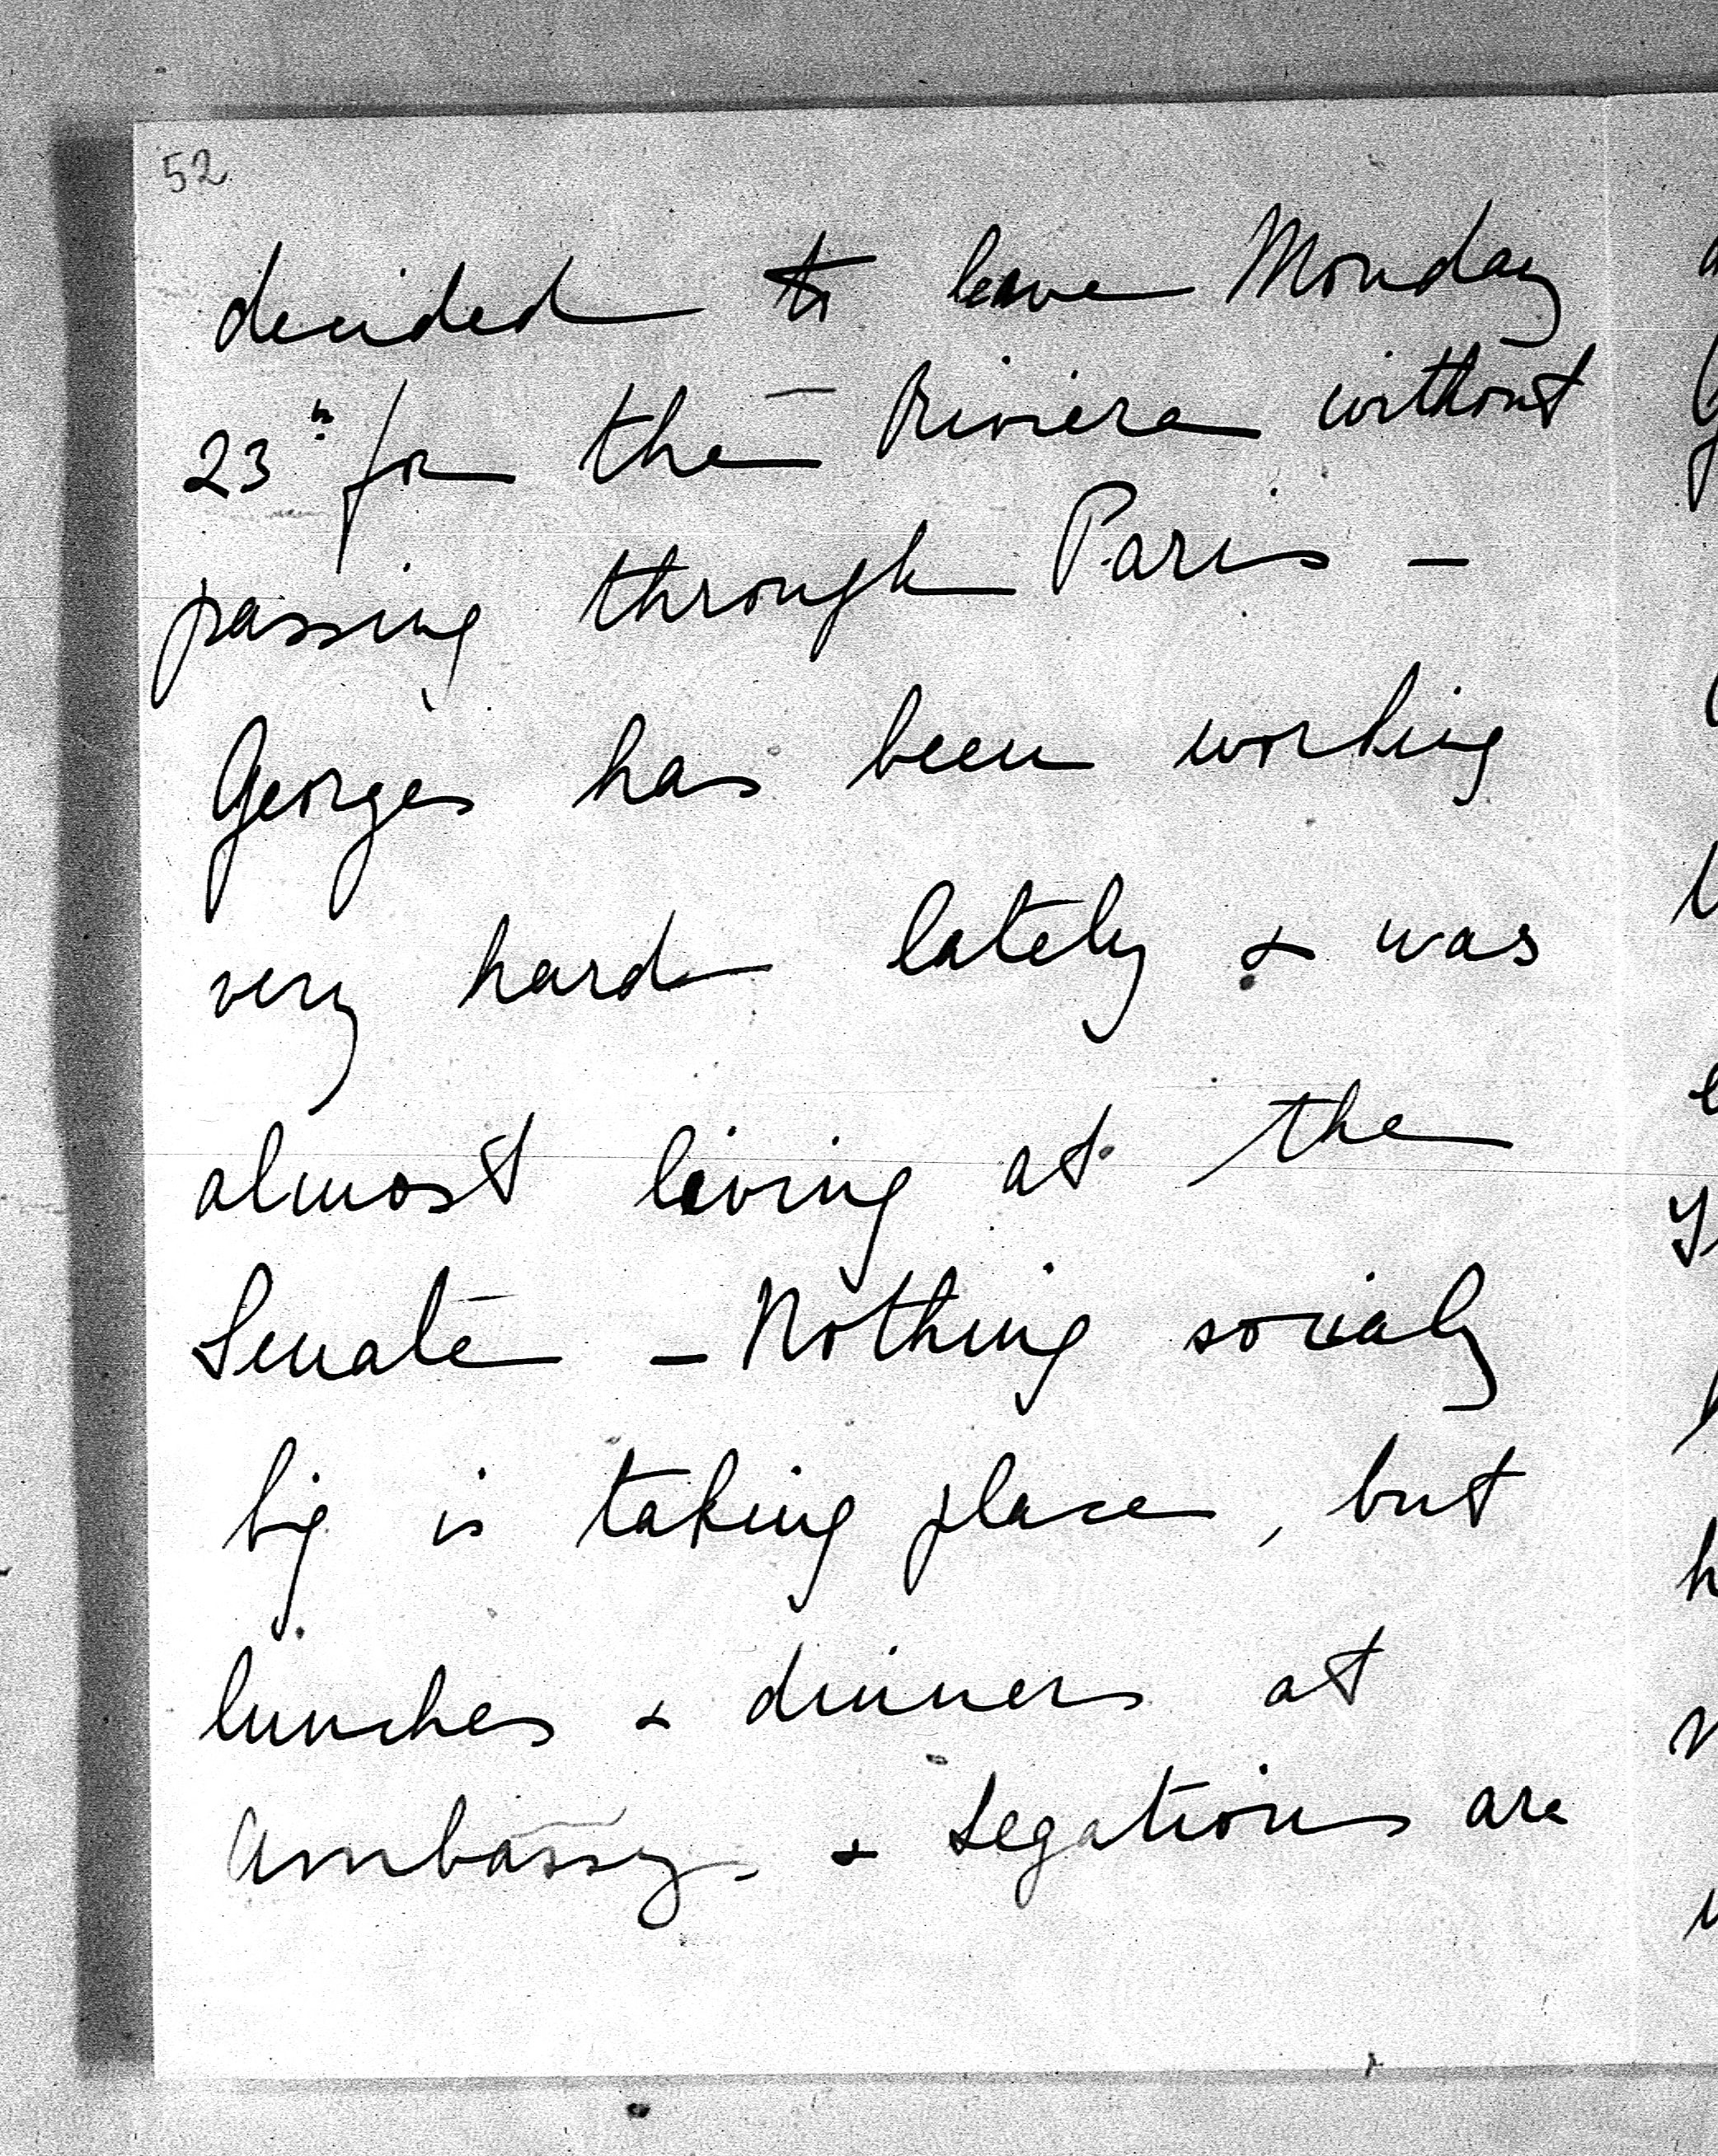 52
decided to leave Monday
23rd for the Riviera without
passing through Paris –
Georges has been working
very hard lately & was
almost living at the
Senate – Nothing socialy
big is taking place, but
lunches & dinners at
Ambassys & Legations are